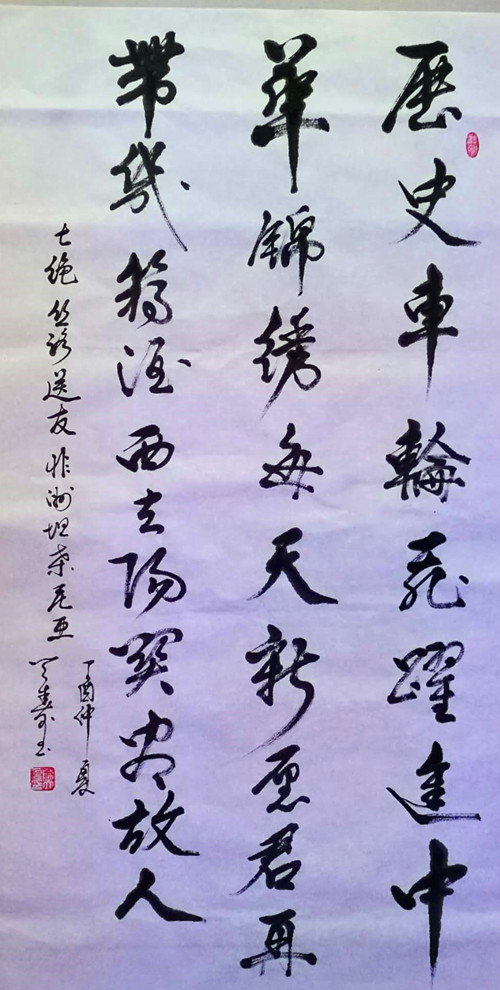 歷史車輪飛躍進中
華錦綉每天新愿君再
帶幾酒西去陽關尽故人
七絶丝路送友非洲坦桑尼亚
丁酉仲夏